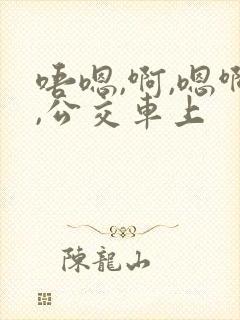 唔嗯,啊,嗯啊
,公交車上
陳龍山